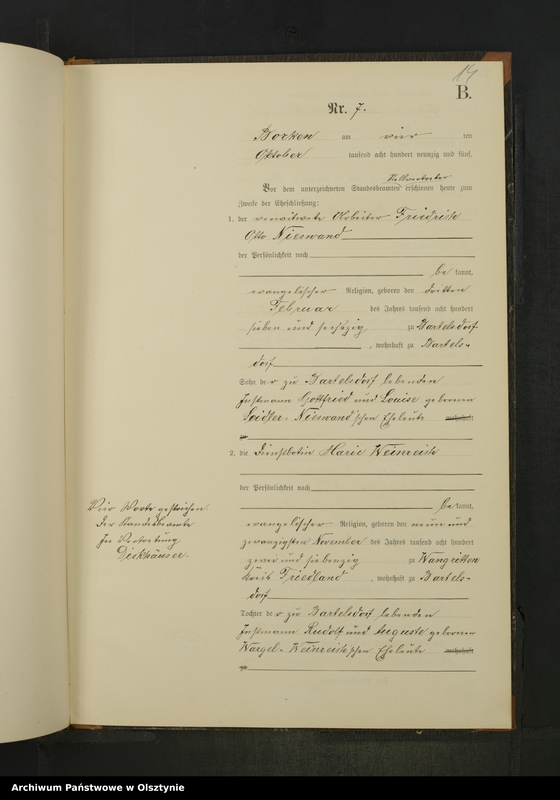 14
B.
Nr. 7.
Borken am vier ten
Oktober tausend acht hundert neunzig und fünf.
Stellvertreter
Vor dem unterzeichneten Standesbeamten erschienen heute zum
Zwecke der Eheschließung:
1. der verwitwete Arbeiter Friedrich
Otto Nieswand
der Persönlichkeit nach
be kannt,
evangelischer Religion, geboren den dritten
Februar des Jahres tausend acht hundert
sieben und sechszig zu Bartelsdorf
, wohnhaft zu Bartels-
dorf
Sohn der zu Bartelsdorf lebenden
Instmann Gottfried und Louise geborenen
Nieswand'schen Eheleute wohnhaft
zu
2. die Dienstbotin Marie Weinreich
der Persönlichkeit nach
be kannt,
evangelischer Religion, geboren den neun und
zwanzigsten November des Jahres tausend acht hundert
zwei und siebenzig zu Wangritten
Kreis Friedland, wohnhaft zu Bartels-
dorf
Tochter der zu Bartelsdorf lebenden
Instmann Rudolf und Auguste geborenen
Wargel-Weinreich'schen Eheleute wohnhaft
zu
Vier Worte gestrichen.
Der Standesbeamte
In Vertretung
Archiwum Państwowe w Olsztynie